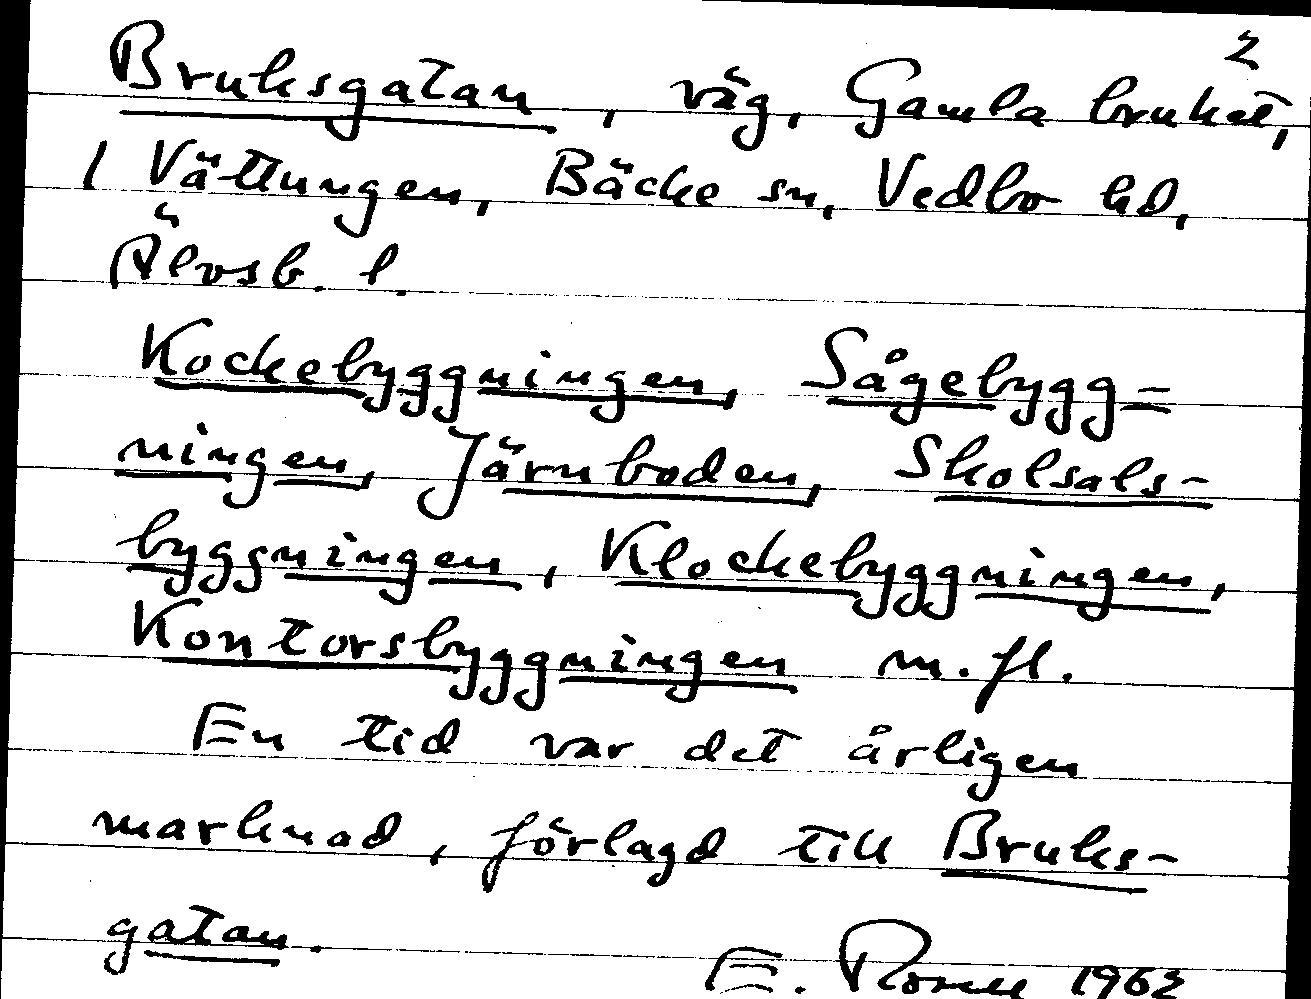 2
Bruksgatan, väg, Gamla bruket,
1 Vättungen, Bäcke sn, Vedbo hd,
Älvsb. l.
Kockebyggningen, Sågebygg-
ningen, Järnboden, Skolsals-
byggningen, Klockebyggningen,
Kontorsbyggningen m.fl.
En tid var det årligen
marknad, förlagd till Bruks-
gatan.
E. 1962